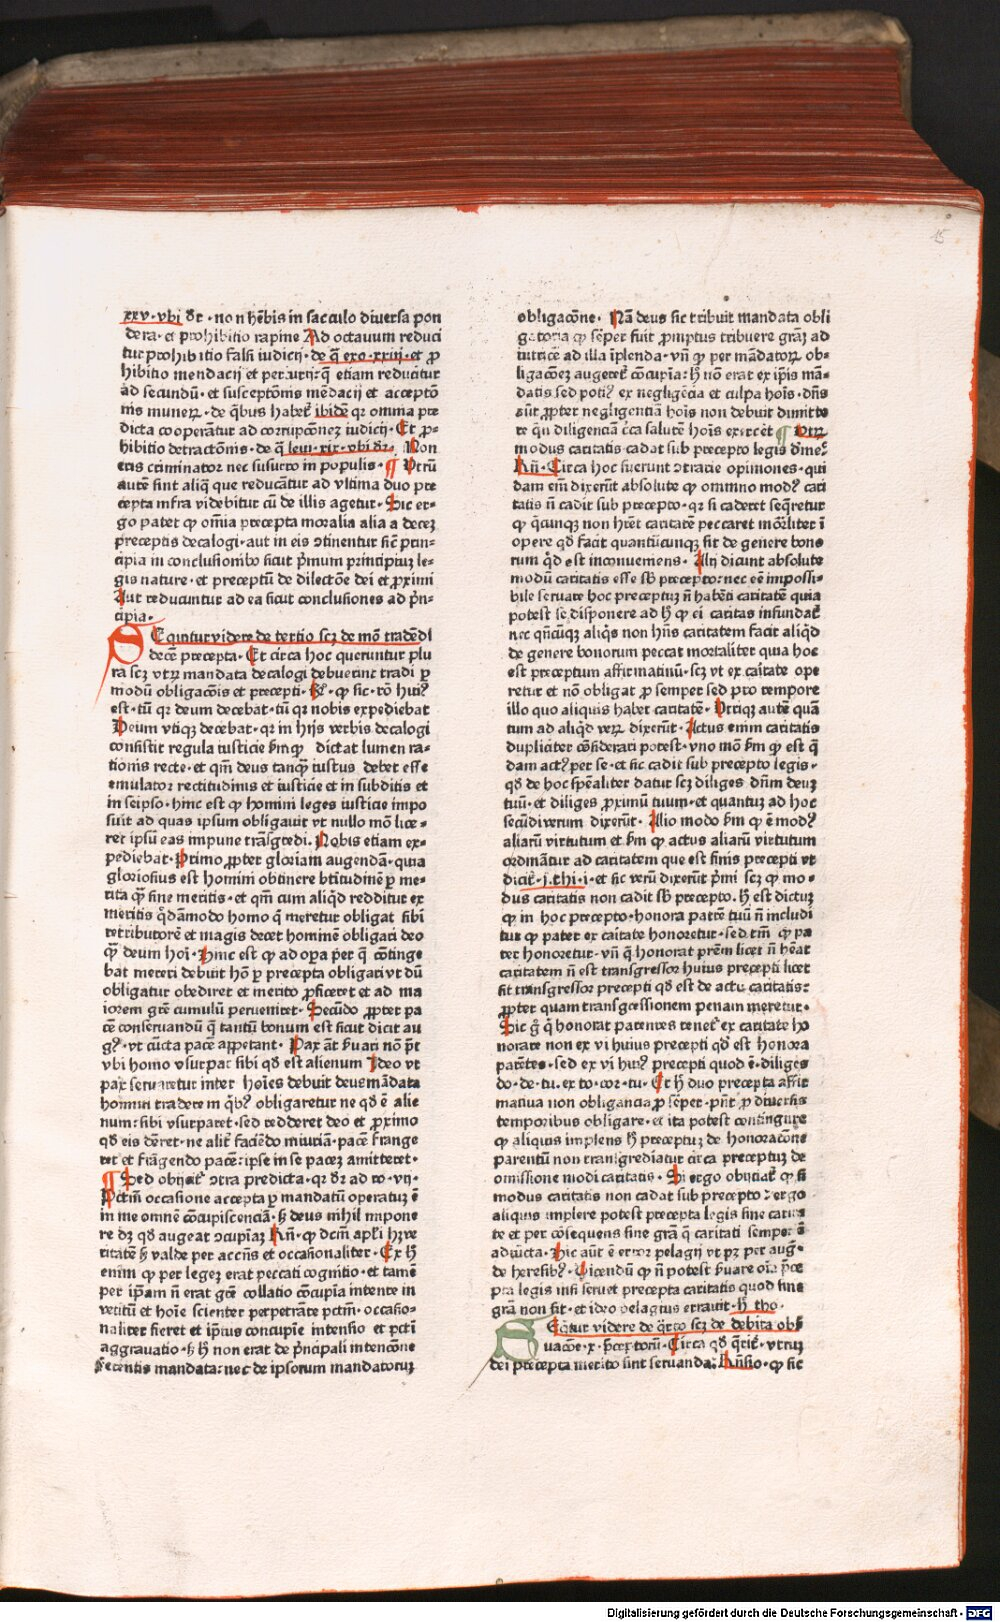 15
xxv·vbi dr̄·non hēbis in sacculo diuersa pon
dera·et prohibitio rapine Ad octauum reduci
tur prohibitio falsi iudicij·de q̄ exo·xxiij·et ꝓ
hibitio mendacij et periurij:q̄ etiam reducitur
ad secundū·et susceptōnis mēdacij et acceptō
nis munerꝝ·de q̄bus habetᷣ ibidē qꝛ omnia pre
dicta cooperātur ad corrupcōneꝫ iudicij·Et ꝓ-
hibitio detractōnis·de q̄ leui·xix·vbi dr̄·Non
eris criminator nec susurro in populis·¶ Vtrū
autē sint aliq̄ que reducātur ad vltima duo pre
cepta infra videbitur cū de illis agetur·Sic er-
go patet ꝙ om̄ia precepta moralia alia a deceꝫ
preceptis decalogi·aut in eis ↄtinentur sicū prin-
cipia in conclusionibꝰ sicut pͥmum principiuꝫ le-
gis nature·et preceptū de dilectōe dei et ꝓximi
Aut reducuntur ad ea sicut conclusiones ad pͥn-
cipia·
SEquitur videre de tertio scꝫ de mō tradēdi
decē precepta·Et circa hoc queruntur plu
ra scꝫ vtrꝝ mandata decalogi debuerint tradi ꝑ
modū obligacōis et precepti·Rͦ·ꝙ sic·rō huiꝰ
est·tū qꝛ deum decebat·tū qꝛ nobis expediebat
Deum vtiqꝫ decebat·qꝛ in hijs verbis decalogi
consistit regula iusticie ẜm ꝙ dictat lumen ra-
tionis recte·et qm̄ deus tanqꝫ iustus debet esse
emulator rectitudinis et iusticie et in subditis et
in seipso·hinc est ꝙ homini leges iusticie impo
suit ad quas ipsum obligauit vt nullo mō lice-
ret ipsū eas impune trāsgredi·Nobis etiam ex-
pediebat·Primo ꝓpter gloriam augendā·quia
gloriosius est homini obtinere btitudinē ꝑ me-
rita qꝫ sine meritis·et qm̄ cum aliqd redditur ex
meritis qdāmodo homo q̄ meretur obligat sibi
retributorē et magis decet hominē obligari deo
qꝫ deum hoī·Hinc est ꝙ ad oꝑa ꝑer q̄ cōtinge
bat mereri debuit hō ꝑ precepta obligari vt dū
obligatur obediret et merito ꝓficeret et ad ma
iorem gr̄e cumulū perueniret·Secūdo ꝓpter pa
cē conseruandū q̄ tantū bonum est sicut dicit au
gꝰ·vt cūcta pacē appetant·Pax āt ẜuari nō pt̄
vbi homo vsurpat sibi qd est alienum Ideo vt
pax seruaretur inter hoīes debuit deus mādata
homini tradere in q̄bꝰ obligaretur ne qd ē alie
num:sibi vsurparet·sed redderet deo et ꝓximo
qd eis dēret·ne alit faciēdo iniuriā·pacē frange
ret et frāgendo pacē:ipse in se paceꝫ amitteret·
¶ Sed obijcitᷣ ↄtra predicta·qꝛ dr̄ ad ro·vij·
Pctm̄ occasione accepta ꝑ mandatū operatuꝫ ē
in me omnē cōcupiscenciā·ẜꝫ deus nihil impone
re dꝫ qd augeat ↄcupiaꝫ Rn̄·ꝙ dcm̄ apl̄i hꝫ ve
ritatē ẜꝫ valde per accn̄s et occasionaliter·Ex ħ
enim ꝙ per legeꝫ erat peccati cognitio·et tamē
per ip̄am n̄ erat gr̄e collatio cōcupia intente in
vetitū et hoīe scienter perpetrāte pctm̄·occasio-
naliter fieret et ip̄ius concupie intensio et pcti
aggrauatio·ẜꝫ ħ non erat de pͥncipali intencōne
Recentis mandata:nec de ipsorum mandatorum
obligacōne·Nā deus sic tribuit mandata obli
gatoria ꝙ sēper fuit ꝓmptus tribuere grāꝫ ad
iutricē ad illa īplenda·vn̄ ꝙ per mādatoꝝ ob-
ligacōeꝫ augeretᷣ cōcupīa:ħ nō erat ex ip̄is mā-
datis sed potiꝰ ex negligēcia et culpa hoīs·dn̄s
aūt ꝓpter negligentiā hoīs non debuit dimitte
re qn̄ diligenciā c̄ca salutē hoīs exercēt ¶ Vtrꝝ
modus caritatis cadat sub precepto legis dīne·
Rn̄·Circa hoc fuerunt ↄtrarie opiniones·qui
dam em̄ dixerūt absolute ꝙ omnino modꝰ cari
tatis n̄ cadit sub precepto·qꝛ si caderet seq̄retur
ꝙ q̄cunqꝫ non hr̄et caritatē peccaret mōrliter ī
opere qd facit quantūcunqꝫ sit de genere bono
rum qd est inconueniens·Alij dicunt absolute
modū caritatis esse sb̄ precepto:nec eē impossi-
bile seruare hoc preceptuꝫ n̄ habēti caritatē quia
potest se disponere ad ħ ꝙ ei caritas infundatᷣ
nec qn̄cūqꝫ aliqs non hn̄s caritatem facit aliqd
de genere bonorum peccat mortaliter quia hoc
est preceptum affirmatiuū·scꝫ vt ex caītate ope
retur et nō obligat ꝓ semper sed pro tempore
illo quo aliquis habet caritatē·Vtriqꝫ autē quā
tum ad aliqd verꝝ dixerūt·Actus enim caritatis
dupliciter cōsiderari potest·vno mō ẜm ꝙ est q̄
dam actꝰ per se·et sic cadit sub precepto legis·
qd de hoc sp̄ealiter datur scꝫ diliges dn̄m deuꝫ
tuū·et diliges ꝓximū tuum·et quantuꝫ ad hoc
secūdi verum dixerūt·Alio modo ẜm ꝙ ē modꝰ
aliarū virtutum et ẜm ꝙ actus aliarū virtutum
ordinātur ad caritatem que est finis precepti vt
dicitᷣ·j·thi·i·et sic verū dixerūt pͥmi scꝫ ꝙ mo-
dus caritatis non cadit sb̄ precepto·ħ est dictuꝫ
ꝙ in hoc precepto·honora patrē tuū n̄ includi
tur ꝙ pater ex caītate honoretur·sed tm̄ ꝙ pa
ter honoretur·vn̄ q̄ honorat prēm licet n̄ hēat
caritatem n̄ est transgressor huius precepti licet
sit transgressor precepti qd est de actu caritatis:
ꝓpter quam transgressionem penam meretur·
Sic gͦ q̄ honorat parentes tenetᷣ ex caritate ho
norare non ex vi huius precepti qd est honora
parētes·sed ex vi huiꝰ precepti quod ē·diliges
do·de·tu·ex to·cor·tu·Et ħ duo precepta affir
matiua non obligancia ꝓ sēper·pn̄t ꝓ diuersis
temporibus obligare·et ita potest contingere
ꝙ aliquis implens ħ preceptuꝫ de honoracōne
parentū non transgrediatur circa preceptuꝫ de
omissione modi caritatis·Si ergo obijciatᷣ ꝙ si
modus caritatis non cadat sub precepto:ergo
aliquis implere potest precepta legis sine carita
te et per cōsequens sine grā q̄ caritati semper ē
adiūcta·Hic aūt ē error pelagij vt pꝫ per augͦ·
de heresibꝰ·Dicendū ꝙ n̄ potest ẜuare oīa p̄ce
pta legis nisi seruet precepta caritatis quod sine
grā non fit·et ideo pelagius errauit·ħ tho·
SEq̄tur videre de q̄rto scꝫ de debita obẜ
uacōe·x·p̄ceptorū·Circa qd q̄ritᷣ·vtruꝫ
dei precepta merito sint seruanda:Rn̄sio·ꝙ sic
Digitalisierung gefördert durch die Deutsche Forschungsgemeinschaft - DFG